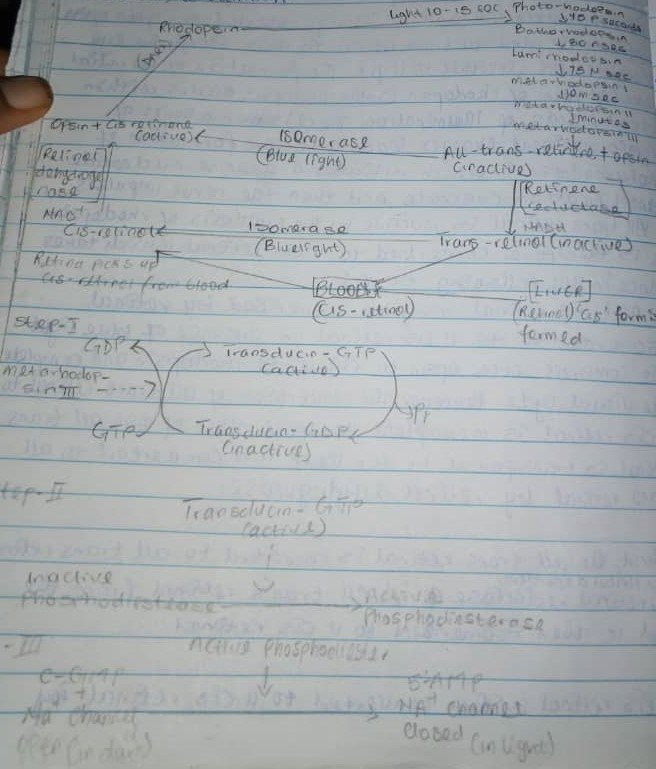 light 10-15 sec Photo-rhodopsin
↓40 P seconds
Rhodopsin
Batho rhodopsin
↓80 nsec
Lumi rhodopsin
↓75 N sec
metarhodopsin I
↓10 m sec
metarhodopsin II
↓minutes
metarhodopsin III
Opsin + Cis retinene
(active)
Isomerase
(Blue light)
All-trans-retinene + opsin
(inactive)
[Retinol
dehydroge
nase]
[Retinene
reductase]
NAD+
NADH
Cis-retinol
Isomerase
(Bluelight)
Trans-retinol (inactive)
Retina picks up
Cis-retinol from blood
[BLOOD]
(Cis-retinol)
[LIVER]
(Retinol) 'Cis' form is
formed
Step-I
GDP
Transducin-GTP
(active)
metarhodop-
sin III
Pi
GTP
Transducin-GDP
(inactive)
tep-II
Transducin-GTP
(active)
Inactive
Phosphodiesterase
Phosphodiesterase
-III
Active phosphodiester
C-GMP
+
Na+ channel
open (in dark)
5'AMP
NA+ channel
closed (in light)